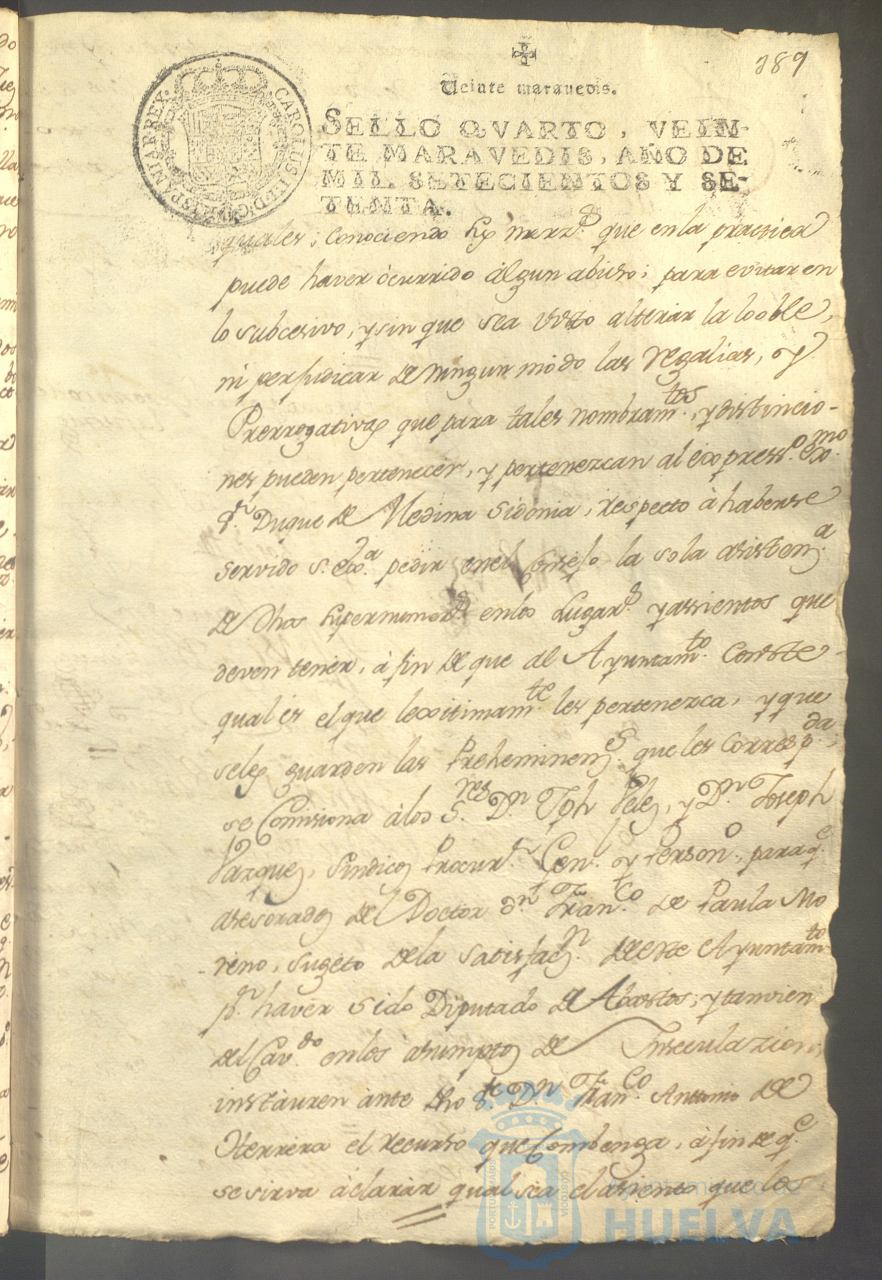 389
Veinte maravedis.
SELLO QVARTO, VEIN-
TE MARAVEDIS, AÑO DE
MIL SETECIENTOS Y SE-
TENTA.
CAROLUS III D G HISPANIAR REX
quales; conociendo que en la practica
puede haver ocurrido algun abuso; para evitar en
lo subcesivo, y sin que sea visto alterar la loable,
ni perjudicar de ningun modo las regalias, y
Prerrogativas que para tales nombramtos. y distincio-
nes pueden pertenecer, y pertenezcan al expressdo. Exmo.
Sr. Duque de Medina Sidonia, respecto à haberse
servido S. Exa. pedir en el Consejo la sola asistena.
de dhos en los Lugars. y asientos que
deven tener, à fin de que al Ayuntamto. Conste
qual es el que lexitimamte. les pertenezca, y que
seles guarden las Preheminens. que les Correspda.;
se Comisiona à los Sres. Dn. Jph Velez, y Dn. Joseph
Vazquez, Sindicos Procurs. Genl. y Persono. para qe.
asesorados del Doctor dn. Franco. de Paula Mo
reno, sugeto dela satisfacn. de este Ayuntamto.
pr. haver sido Diputado de Abastos; y tanvien
del Cavdo. en los asumptos de Inseculazion,
instauren ante dho Sr. Dn. Franco. Antonio de
Herrera el recurso que Combenga, à fin de qe.
se sirva àclarar qual sea el asiento que los
Ayuntamiento de
HUELVA